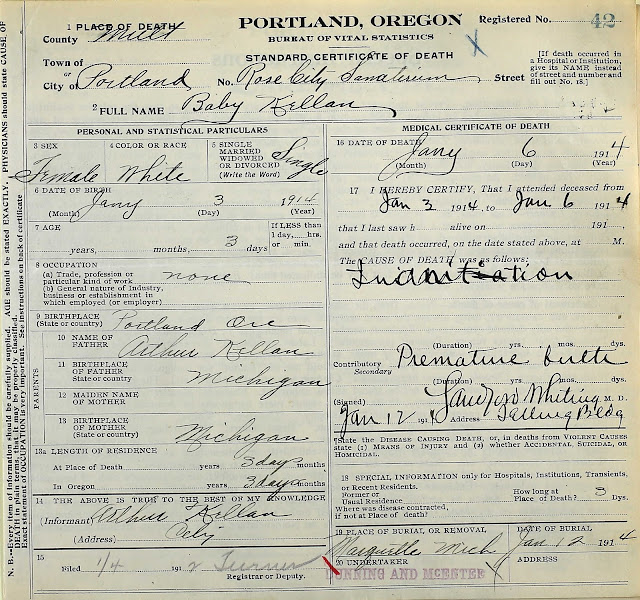 1 PLACE OF DEATH
County Mult
Town of
or
City of Portland
PORTLAND, OREGON
BUREAU OF VITAL STATISTICS
STANDARD CERTIFICATE OF DEATH
Registered No. 42
No. Rose City Sanatorium Street
[If death occurred in a Hospital or Institution, give its NAME instead of street and number and fill out No. 18.]
2 FULL NAME Baby Kellan
PERSONAL AND STATISTICAL PARTICULARS
3 SEX
Female
4 COLOR OR RACE
White
5 SINGLE
MARRIED
WIDOWED
OR DIVORCED
(Write the Word)
Single
6 DATE OF BIRTH
Jany 3 1914
(Month) (Day) (Year)
7 AGE
years, months, 3 days
If LESS than
1 day, hrs.
or min.
8 OCCUPATION
(a) Trade, profession or
particular kind of work none
(b) General nature of Industry,
business or establishment in
which employed (or employer)
9 BIRTHPLACE
(State or country) Portland Ore
PARENTS
10 NAME OF
FATHER Arthur Kellan
11 BIRTHPLACE
OF FATHER
State or country Michigan
12 MAIDEN NAME
OF MOTHER
13 BIRTHPLACE
OF MOTHER
(State or country) Michigan
13a LENGTH OF RESIDENCE
At Place of Death years 3 days months
In Oregon years 3 days months
14 THE ABOVE IS TRUE TO THE BEST OF MY KNOWLEDGE
(Informant Arthur Kellan
(Address) City
15
Filed 1/4 191
Turner
Registrar or Deputy.
MEDICAL CERTIFICATE OF DEATH
16 DATE OF DEATH
Jany 6 1914
(Month) (Day) (Year)
17 I HEREBY CERTIFY, That I attended deceased from
Jan 3 1914, to Jan 6 1914
that I last saw h alive on 191 ,
and that death occurred, on the date stated above, at M.
The CAUSE OF DEATH was as follows:
(Duration) yrs. mos. dys.
Contributory Premature birth
Secondary
(Duration) yrs. mos. dys.
(Signed) Whiting M. D.
Jan 12 191 Address Bldg
(State the DISEASE CAUSING DEATH, or, in deaths from VIOLENT CAUSES state (1) MEANS OF INJURY and (2) whether ACCIDENTAL, SUICIDAL, or HOMICIDAL.
18 SPECIAL INFORMATION only for Hospitals, Institutions, Transients, or Recent Residents.
Former or
Usual Residence
How long at
Place of Death? 3 Dys.
Where was disease contracted,
if not at Place of death?
19 PLACE OF BURIAL, OR REMOVAL
Mich
DATE OF BURIAL
Jan 12 1914
20 UNDERTAKER
DUNNING AND McENTEE
ADDRESS
N. B.—Every item of information should be carefully supplied. AGE should be stated EXACTLY. PHYSICIANS should state CAUSE OF
DEATH in plain terms, that it may be properly classified.
Exact statement of OCCUPATION is very important. See instructions on back of certificate